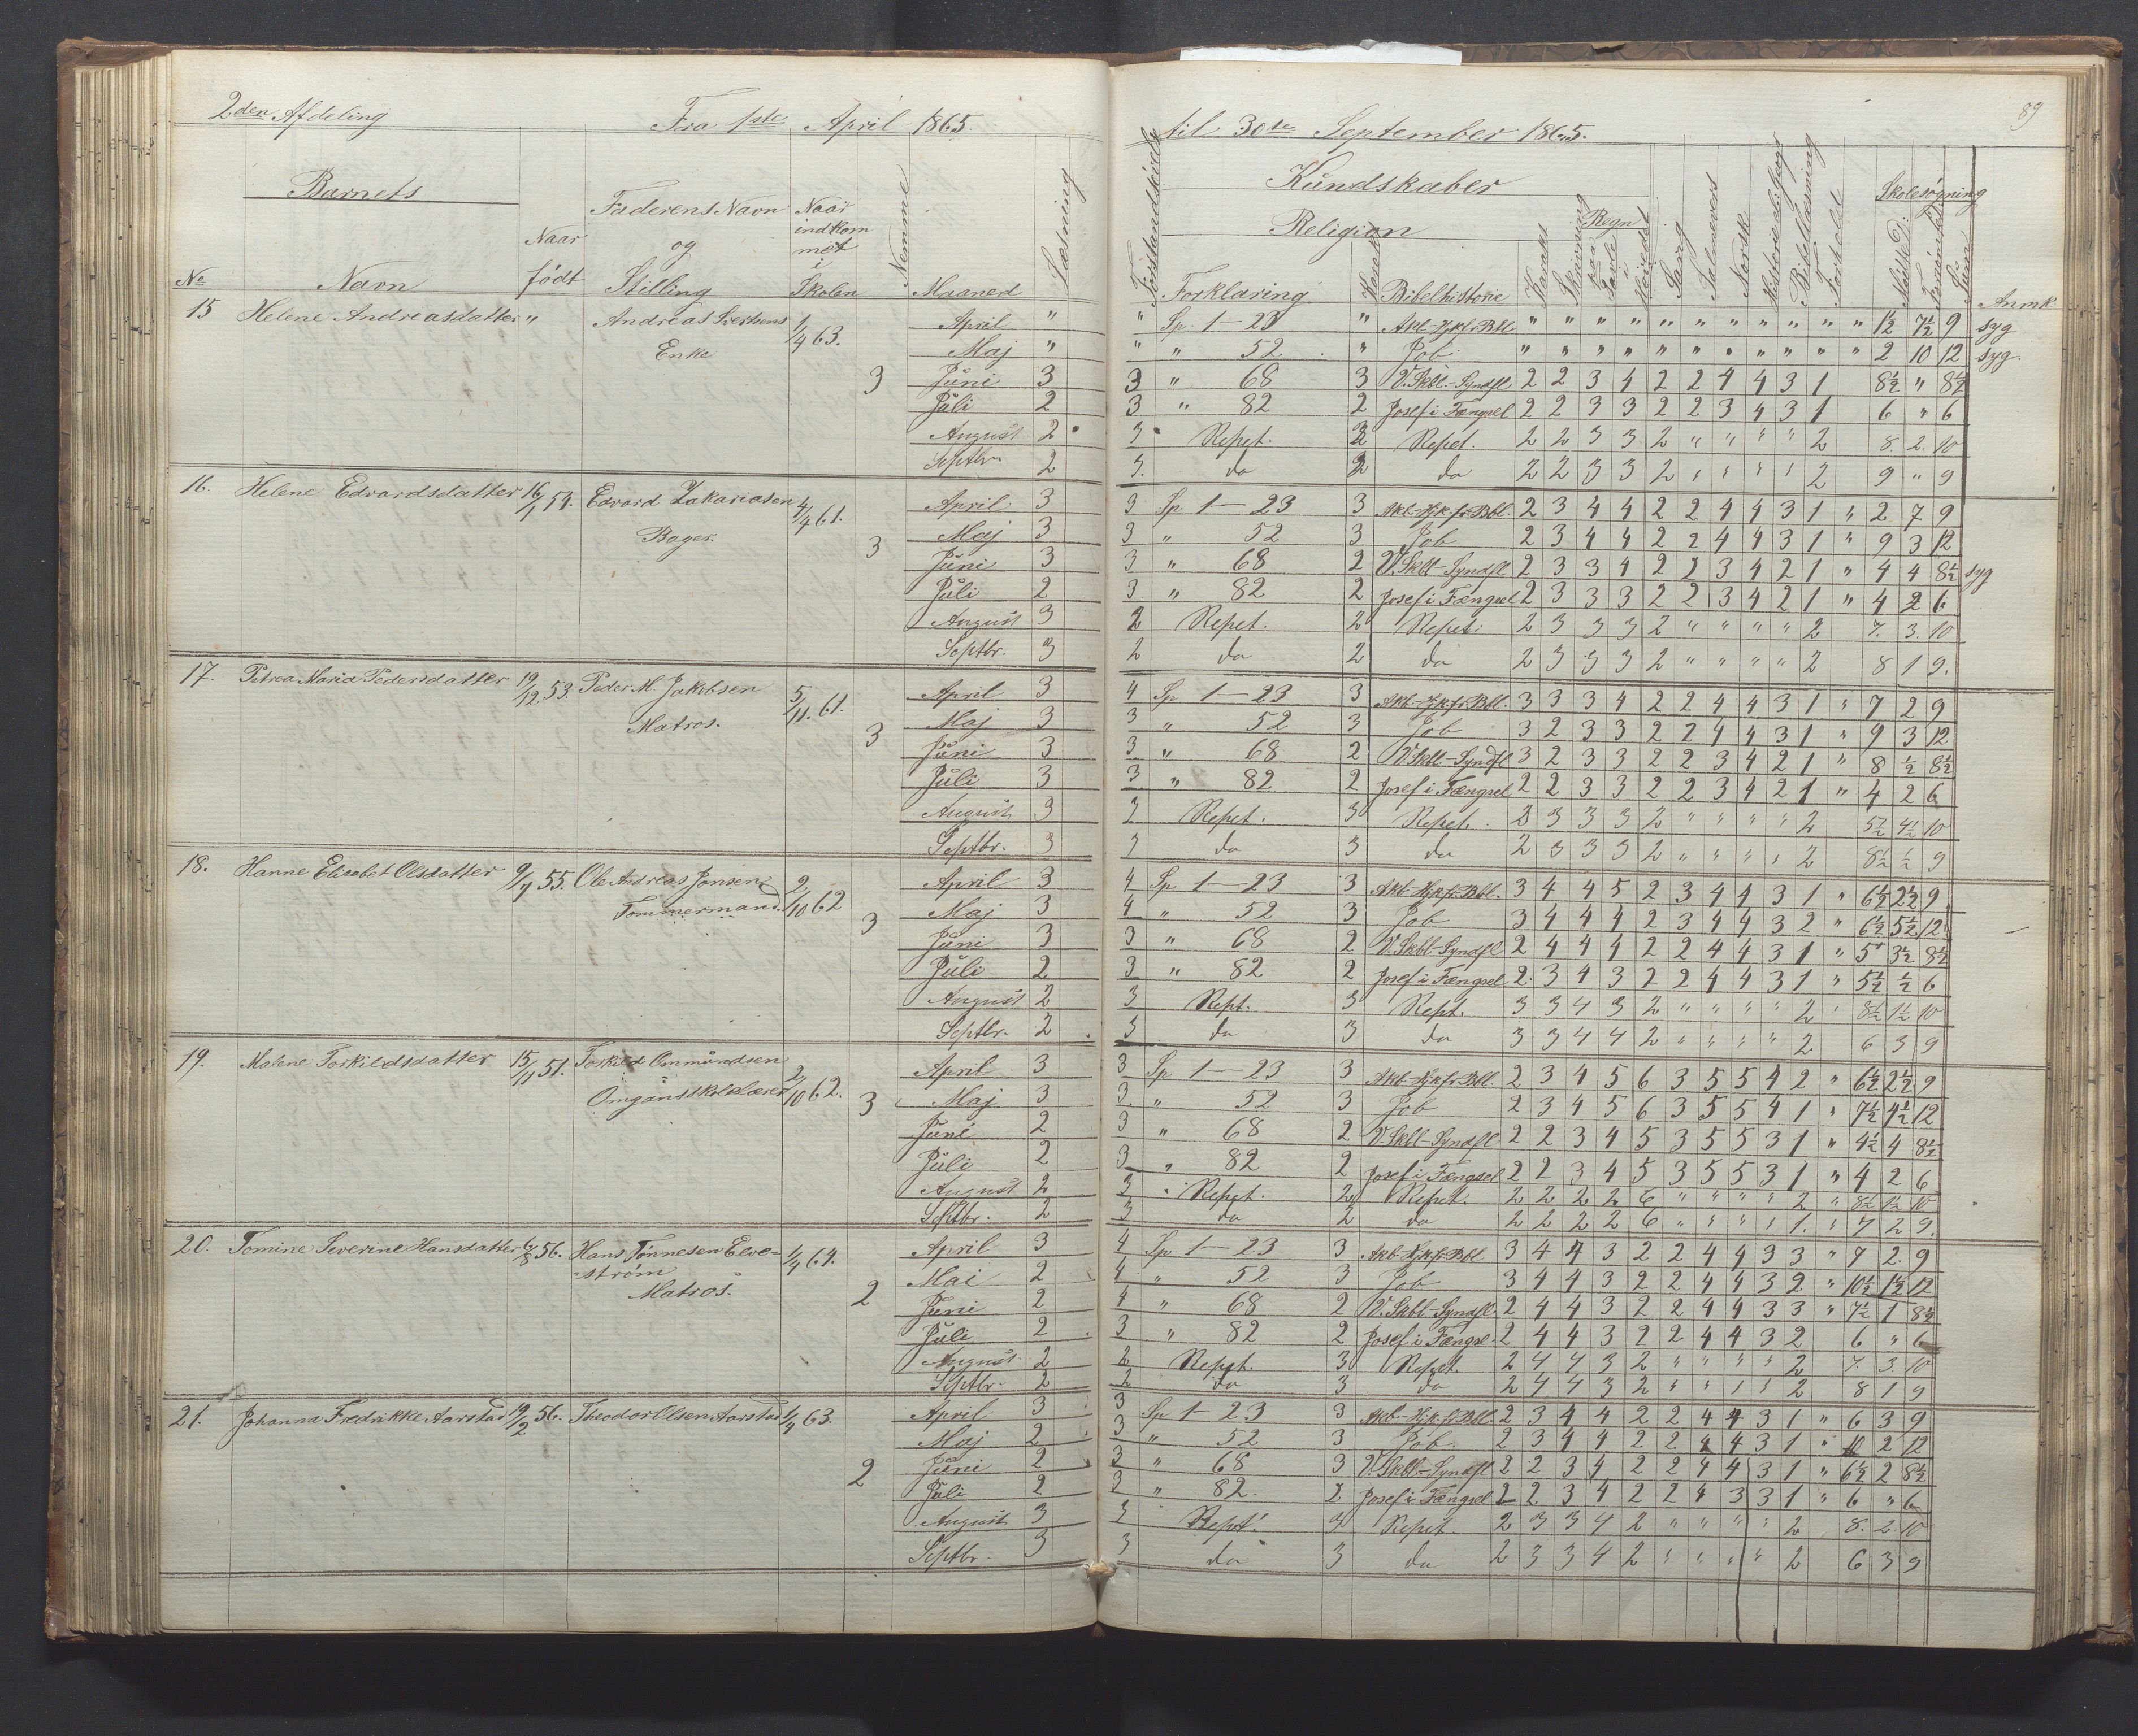 2den Afdeling Fra 1ste April 1865. til 30te September 1865. 89
Barnets Kundskaber Skolesøgning
Faderens Navn Naar Religion Regn
Naar og indkom
met
i
№ Navn født Stilling Skolen Nemme Maaned Læsning Forstandsøvelse Forklaring Karakt Bibelhistorie Karakt Skrivning paa Tavle i Hovedet Sang Salmevers Norsk Bibellæsning Forhold Mødt Forsømt Sum Anmk
15 Helene Andreasdatter " Andreas Ivertsens 1/4 63. April " " Sp. 1-23 " Akb-Hjkfr Bbl " " " " " " " " " " " 1½ 7½ 9 syg
Enke Maj " " " 52 " Job " " " " " " " " " " " 2 10 12 syg.
3 Juni 3 3 " 68 3 V.Skbl.-Syndfl 2 2 3 4 2 2 4 4 3 1 8½ " 8½
Juli 2 3 " 82 2 Josef i Fængsel 2 2 3 3 2 2 3 4 3 1 6 " 6
August 2 3 Repet. 2 Repet. 2 2 3 3 2 " " " " 2 8. 2. 10
Septbr. 2 3. do 2 do 2 2 3 3 2 " " " " 2 9 " 9
16. Helene Edvardsdatter 16/1 54. Edvard Zakariasen 4/4 61. April 3 3 Sp 1-23 3 Akb-Hjkfr Bbl. 2 3 4 4 2 2 4 4 3 1 " 2 7 9
Bager. 3 Maj 3 3 " 52 3 Job 2 3 4 4 2 2 4 4 3 1 " 9 3 12
Juni 3 3 " 68 2 V.Skbl-Syndfl 2 3 3 4 2 2 3 4 2 1 " 4 4 8½ syg
Juli 2 3 " 82 2 Josef i Fængsel 2 3 3 3 2 2 3 4 2 1 " 4 2 6
August 3 2 Repet. 2 Repet. 2 3 3 3 2 " " " " 2 7. 3. 10
Septbr. 3 2 do 2 do 2 3 3 3 2 " " " " 2 8 1 9.
17. Petrea Maria Pedersdatter 19/12 53. Peder M. Jakobsen 5/11. 61. April 3 4 Sp 1-23 3 Akb-Hjkfr Bbl. 3 3 3 4 2 2 4 4 3 1 " 7 2 9
Matros. 3 Maj 3 3 " 52 3 Job 3 2 3 3 2 2 4 4 3 1 " 9 3 12
Juni 3 3 " 68 2 V.Skbl-Syndfl 3 2 3 3 2 2 3 4 2 1 " 8 ½ 8½
Juli 3 3 " 82 2 Josef i Fængsel 2 2 3 3 2 2 3 4 2 1 " 4 2 6
August 3 3 Repet. 3 Repet. 2 3 3 3 2 " " " " 2 5½ 4½ 10
Septbr. 3 3 do 3 do 2 3 3 3 2 " " " " 2 8½ ½ 9
18. Hanne Elisabet Olsdatter 9/7 55. Ole Andreas Jonsen 2/10 62 April 3 4 Sp 1-23 3 Akb-Hjkfr Bbl. 3 4 4 5 2 3 4 4 3 1 " 6½ 2½ 9
Tømmermand. 3 Maj 3 4 " 52 3 Job 3 4 4 4 2 3 4 4 3 2 " 6½ 5½ 12
Juni 3 3 " 68 2 V.Skbl-Syndfl 2 4 4 4 2 2 4 4 3 1 " 5 3½ 8½
Juli 2 3 " 82 2 Josef i Fængsel 2. 3 4 3 2 2 4 4 3 1 " 5½ ½ 6
August 2 3 Rept. 3 Rept. 3 3 4 3 2 " " " " 2 " 8½ 1½ 10
Septbr. 2 3. do 3 do 3 3 4 4 2 " " " " 2 6 3 9
19. Malene Torkildsdatter 15/11 51. Torkild Ommundsen 2/10 62. April 3 3 Sp 1-23 3 Akb-Hjkfr Bbl. 2 3 4 5 6 3 5 5 4 2 " 6½ 2½ 9
Omgangsskolelærer 3 Maj 3 3 " 52 3 Job 2 3 4 5 6 3 5 5 4 1 " 7½ 4½ 12
Juni 2 3 " 68 2 V.Skbl-Syndfl 2 2 3 4 5 3 5 5 3 1 " 4½ 4 8½
Juli 2 3 " 82 2 Josef i Fængsel 2 2 3 4 5 3 5 5 3 1 " 4 2 6
August 2 3 Repet. 2 Repet. 2 2 2 2 6 " " " " 2 " 8½ 1½ 10
Septbr. 2 3 do 2 do 2 2 2 2 6 " " " " 1. " 7 2 9.
20. Tomine Severine Hansdatter 6/8 56. Hans Tønnesen Elve= 1/4 64. April 3 4 Sp 1-23 3 Akb-Hjkfr Bbl 3 4 4 3 2 2 4 4 3 3 " 7 2. 9
strøm Mai 2 4 " 52 3 Job 3 4 4 3 2 2 4 4 3 2 " 10½ 1½ 12
Matros. 2 Juni 2 4 " 68 2 V.Skbl-Syndfl. 2 4 4 3 2 2 4 4 3 3 " 7½ 1 8½
Juli 2 3 " 82 2 Josef i Fængsel 2 4 4 3 2 2 4 4 3 2 6 " 6
August 2 2 Repet. 3 Repet. 2 4 4 3 2 " " " " 2 7. 3. 10
Septbr. 2 2 do 3 do 2 4 4 3 2 " " " " 2 8 1 9
21. Johanna Fredrikke Aarstad 19/2 56. Theodor Olsen Aarstad 1/4 63. April 3 3 Sp 1-23 3 Akb-Hjkfr Bbl. 2 3 4 4 2 2 4 4 3 1 " 6 3 9
Maj 2 3 " 52 3 Job. 2 3 4 4 2 2 4 4 3 1 " 10 2 12
2 Juni 2 3 " 68 3 V.Skbl-Syndfl 2 2 3 4 2 2 4 4 3 1 " 6½ 2 8½
Juli 2 3 " 82. 2 Josef i Fængsel 2 2 3 4 2 2 4 3 3 1 " 6 " 6
August 3 3 Rept. 3 Repet. 2 3 3 4 2 " " " " 2 8. 2. 10
Septbr. 3 3 do 3 do 2 3 3 4 2 " " " " 2 6 3 9